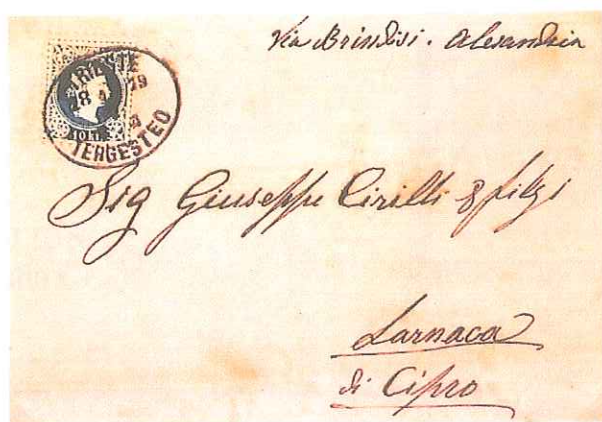 Via Brindisi. Alesandria
TRIESTE
28 79
TERGESTEO
10 KR.
Sig Giuseppe Cirilli & figi
Larnaca
di Cipro